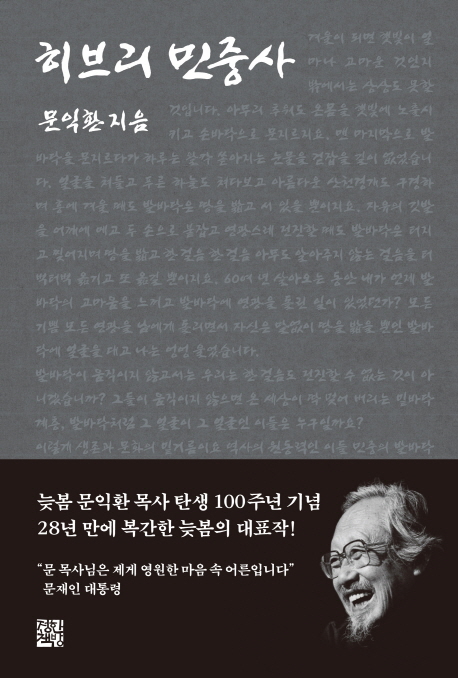 히브리 민중사
문익환 지음
겨울이 되면 햇빛이 얼
마나 고마운 것인지
밖에서는 상상도 못할
것입니다. 아무리 추워도 온몸을 햇빛에 노출시
키고 손바닥으로 문지르지요. 맨 마지막으로 발
바닥을 문지르다가 하루는 왈칵 쏟아지는 눈물을 걷잡을 길이 없었습니
다. 얼굴을 쳐들고 푸른 하늘도 쳐다보고 아름다운 산천경개도 구경하
며 흥에 겨울 때도 발바닥은 땅을 밟고 서 있을 뿐이지요. 자유의 깃발
을 어깨에 메고 두 손으로 붙잡고 영광스레 전진할 때도 발바닥은 터지
고 찢어지며 땅을 밟고 한 걸음 한 걸음 아무도 알아주지 않는 걸음을 터
벅터벅 옮기고 또 옮길 뿐이지요. 60여 년 살아오는 동안 내가 언제 발
바닥의 고마움을 느끼고 발바닥에 영광을 돌린 일이 있었던가? 모든
기쁨 모든 영광을 남에게 돌리면서 자신은 말없이 땅을 밟을 뿐인 발바
닥에 얼굴을 대고 나는 엉엉 울었습니다.
발바닥이 움직이지 않고서는 우리는 한 걸음도 전진할 수 없는 것이 아
니겠습니까? 그들이 움직이지 않으면 온 세상이 딱 멎어 버리는 밑바닥
계층, 발바닥처럼 그 얼굴이 그 얼굴인 이들은 누구일까요?
이렇게 생존과 문화의 밑거름이요 역사의 원동력인 이들 민중의 발바닥
늦봄 문익환 목사 탄생 100주년 기념
28년 만에 복간한 늦봄의 대표작!
“문 목사님은 제게 영원한 마음 속 어른입니다”
문재인 대통령
정한
책방